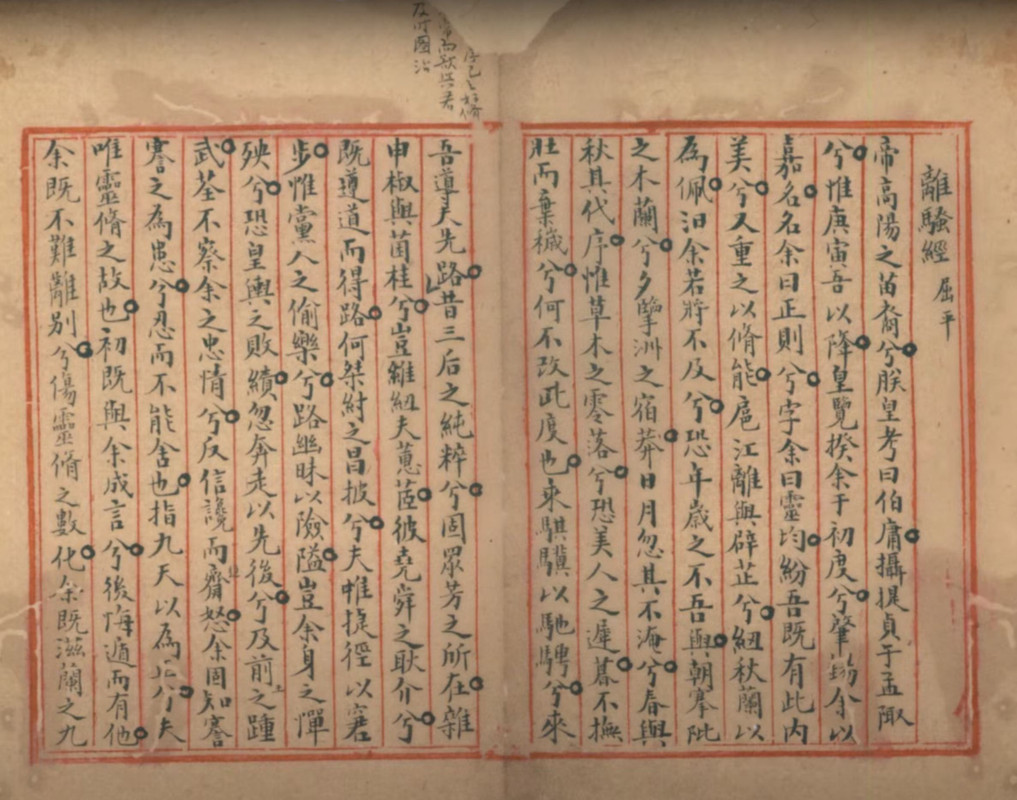 離騷經 屈平
帝高陽之苗裔兮朕皇考曰伯庸攝提貞于孟陬
兮惟庚寅吾以降皇覽揆余于初度兮肇錫余以
嘉名名余曰正則兮字余曰靈均紛吾既有此内
美兮又重之以脩能扈江離與辟芷兮紉秋蘭以
為佩汩余若將不及兮恐年歲之不吾與朝搴阰
之木蘭兮夕擥洲之宿莽日月忽其不淹兮春與
秋其代序惟草木之零落兮恐美人之遲暮不撫
壯而棄穢兮何不改此度也乘騏驥以馳騁兮來
吾導夫先路昔三后之純粹兮固眾芳之所在雜
申椒與菌桂兮豈維紉夫蕙茝彼堯舜之耿介兮
既遵道而得路何桀紂之昌披兮夫惟捷徑以窘
步惟黨人之偷樂兮路幽昧以險隘豈余身之憚
殃兮恐皇輿之敗績忽奔走以先後兮及前之踵
武荃不察余之忠情兮反信讒而齌怒余固知謇
謇之為患兮忍而不能舍也指九天以為正兮夫
唯靈脩之故也初既與余成言兮後悔遁而有他
余既不難離别兮傷靈脩之數化余既滋蘭之九
及前國治